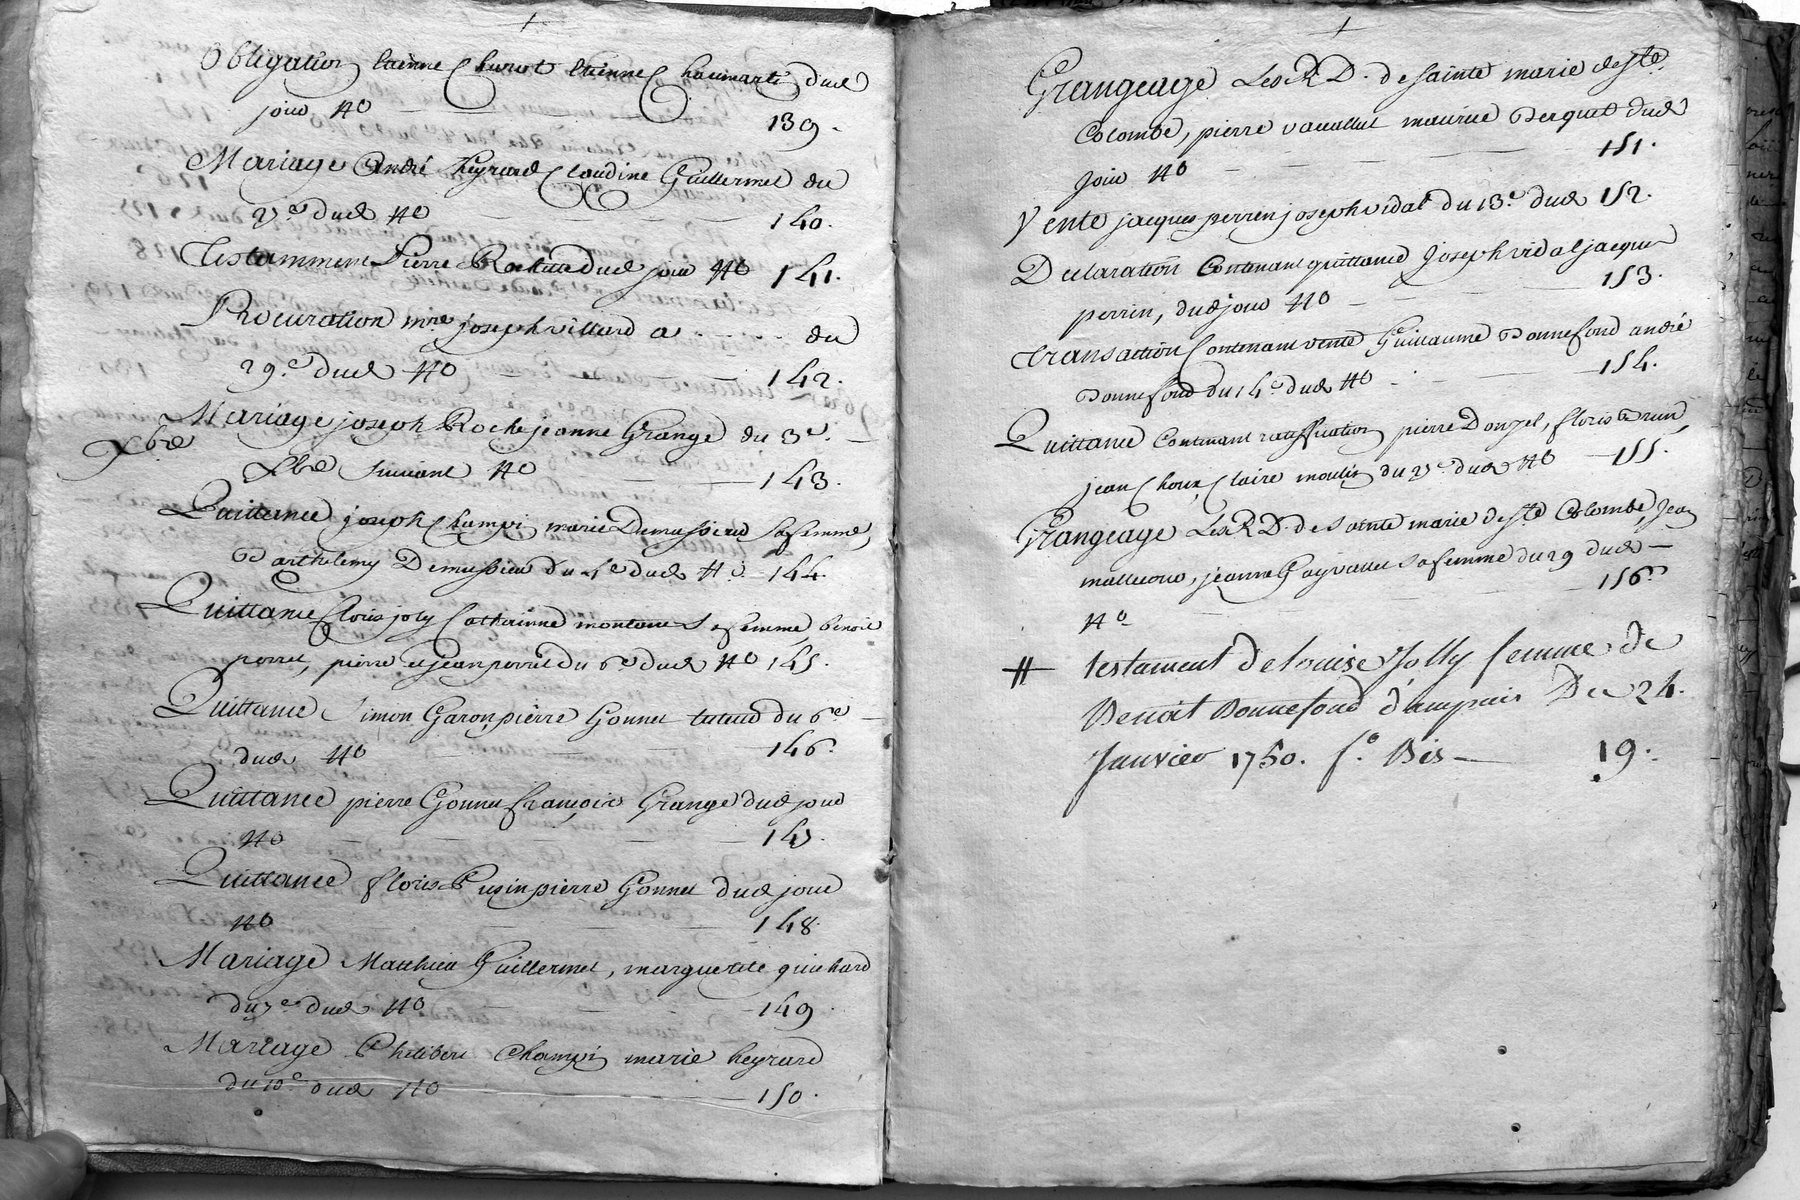 Obligation Etienne Churot Etienne Chaumarti dud
jour No 139.
Mariage André heyrard Claudine Guillermet du
27e. dud No 140.
Testamment Pierre Rochat dud jour No 141.
Procuration mre joseph villard a . . . . . du
29e. dud No 142.
Mariage joseph Roche jeanne Grange du 3e.
Xbre
Xbre suivant No 143.
Quittance joseph Champi marie Demussieu sa femme,
Barthelemy Demussieu du 4e dud No 144.
Quittance floris joly Catherinne montanet sa femme, benoit
perret, pierre et jean perret du 6e dud No 145.
Quittance Simon Garon pierre Gonnet tuteur du 6e
dud No 146.
Quittance pierre Gonnet françois Grange dud jour
No 147.
Quittance floris Pusin pierre Gonnet dud jour
No 148.
Mariage Matthieu Guillermet, marguerite guichard
du 7e dud No 149.
Mariage Philibert Champi marie heyrard
du 10e dud No 150.
Grangeage Les R D. de sainte marie de Ste.
Colombe, pierre maurice Berquet dud
jour No 151.
Vente jacques perrin joseph vidal du 13e dud 152.
Declaration Contenant quittance joseph vidal jacques
perrin, dud jour No 153.
Transaction Contenant vente Guillaume Bonnefond andré
Bonnefond du 14e dud No 154.
Quittance Contenant ratiffication pierre Donzel, floris Brun,
jean Choux Claire moulin du 27e dud No 155.
Grangeage Les R D. de Sainte marie de Ste Colombe, jean
jeanne sa femme du 29 dud
No 156.
# testament de louise Jolly femme de
Benoit Bonnefond d'ampuis Du 24.
Janvier 1750. fo. Bis 19.